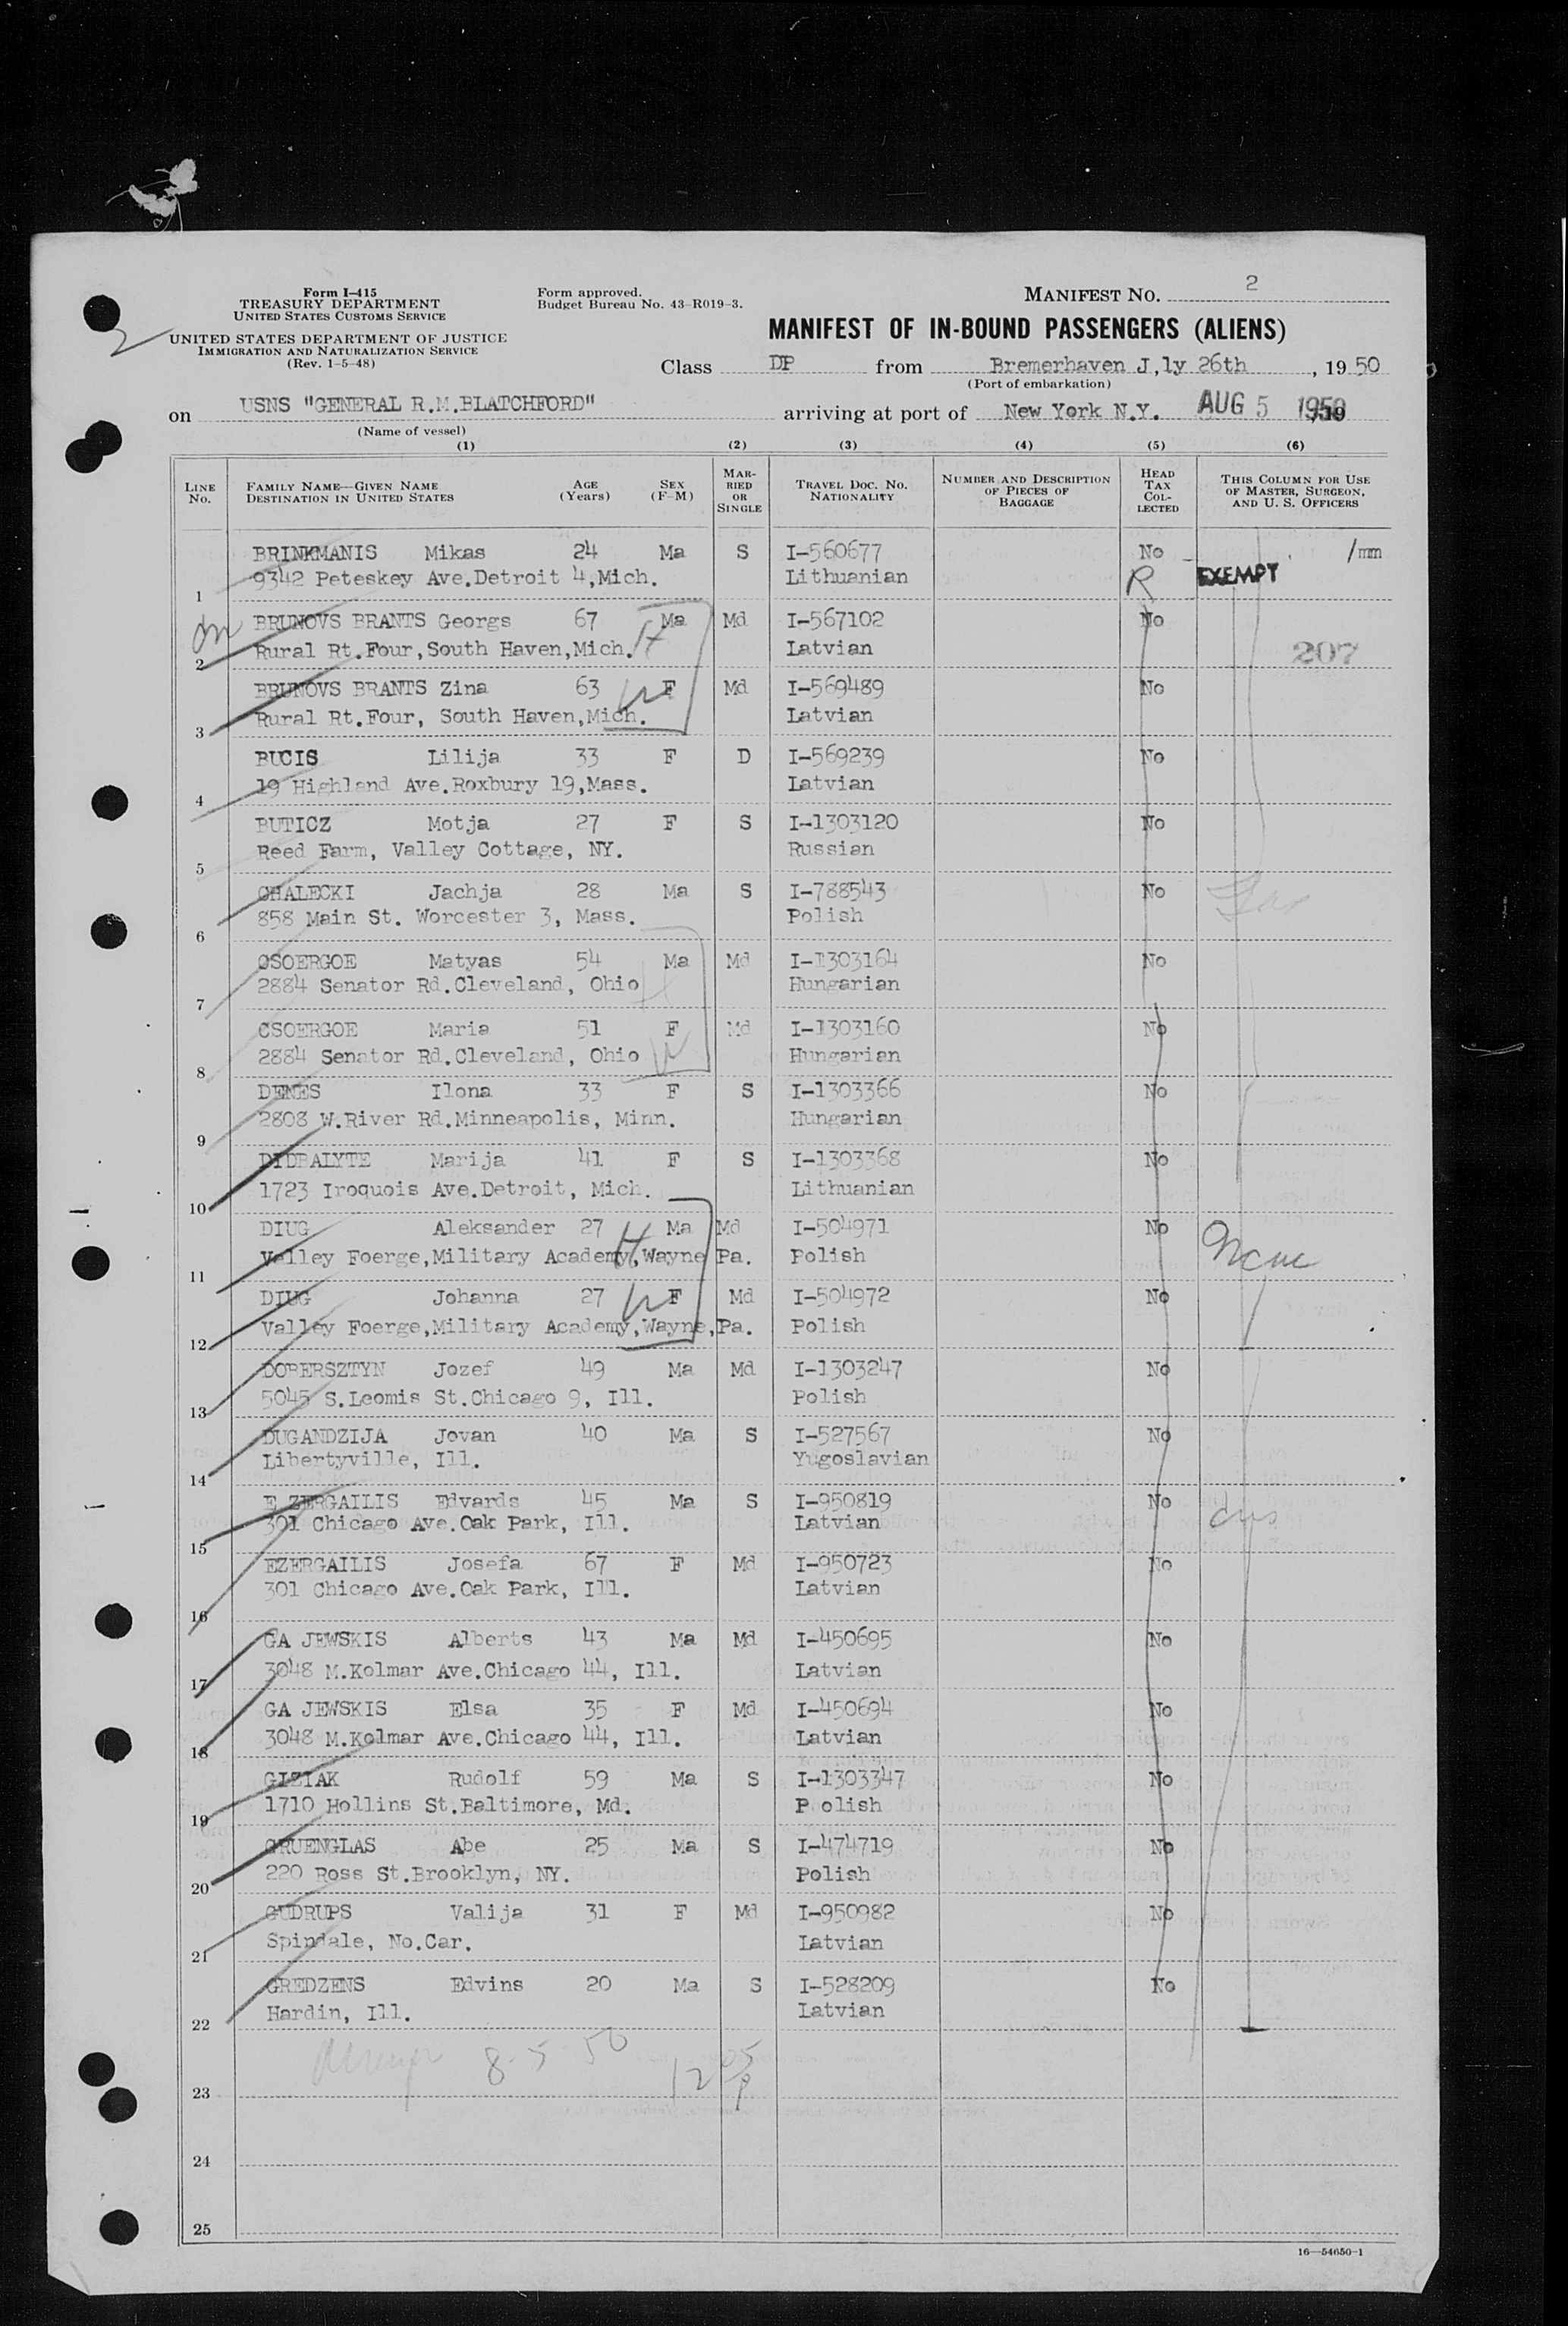 2
Form I-415
TREASURY DEPARTMENT
UNITED STATES CUSTOMS SERVICE
UNITED STATES DEPARTMENT OF JUSTICE
IMMIGRATION AND NATURALIZATION SERVICE
(Rev. 1-5-48)
Form approved.
Budget Bureau No. 43-R019-3.
MANIFEST NO. 2
MANIFEST OF IN-BOUND PASSENGERS (ALIENS)
Class DP from Bremerhaven J,ly 26th, 1950
(Port of embarkation)
on USNS "GENERAL R.M.BLATCHFORD" arriving at port of New York N.Y. AUG 5 1950
(Name of vessel)
(1) (2) (3) (4) (5) (6)
LINE NO. FAMILY NAME—GIVEN NAME DESTINATION IN UNITED STATES AGE (YEARS) SEX (F-M) MARRIED OR SINGLE TRAVEL DOC. NO. NATIONALITY NUMBER AND DESCRIPTION OF PIECES OF BAGGAGE HEAD TAX COLLECTED THIS COLUMN FOR USE OF MASTER, SURGEON, AND U. S. OFFICERS
BRINKMANIS Mikas 24 Ma S I-560677 No /mm
1 9342 Peteskey Ave.Detroit 4,Mich. Lithuanian R EXEMPT
BRUNOVS BRANTS Georgs 67 Ma Md I-567102 No
2 Rural Rt.Four,South Haven,Mich. H Latvian 207
BRUNOVS BRANTS Zina 63 W F Md I-569489 No
3 Rural Rt.Four, South Haven,Mich. Latvian
BUCIS Lilija 33 F D I-569239 No
4 19 Highland Ave.Roxbury 19,Mass. Latvian
BUTICZ Motja 27 F S I-1303120 No
5 Reed Farm, Valley Cottage, NY. Russian
CHALECKI Jachja 28 Ma S I-788543 No
6 858 Main St. Worcester 3, Mass. Polish
CSOERGOE Matyas 54 Ma Md I-1303164 No
7 2884 Senator Rd.Cleveland, Ohio H Hungarian
CSOERGOE Maria 51 F Md I-1303160 No
8 2884 Senator Rd.Cleveland, Ohio W Hungarian
DENES Ilona 33 F S I-1303366 No
9 2808 W.River Rd.Minneapolis, Minn. Hungarian
DIDBALYTE Marija 41 F S I-1303368 No
10 1723 Iroquois Ave.Detroit, Mich. Lithuanian
DIUG Aleksander 27 H Ma Md I-504971 No
11 Valley Foerge,Military Academy,Wayne Pa. Polish
DIUG Johanna 27 W F Md I-504972 No
12 Valley Foerge,Military Academy,Wayne,Pa. Polish
DOBERSZTYN Jozef 49 Ma Md I-1303247 No
13 5045 S.Leomis St.Chicago 9, Ill. Polish
DUGANDZIJA Jovan 40 Ma S I-527567 No
14 Libertyville, Ill. Yugoslavian
E ZERGAILIS Edvards 45 Ma S I-950819 No
15 301 Chicago Ave.Oak Park, Ill. Latvian
EZERGAILIS Josefa 67 F Md I-950723 No
16 301 Chicago Ave.Oak Park, Ill. Latvian
GA JEWSKIS Alberts 43 Ma Md I-450695 No
17 3048 M.Kolmar Ave.Chicago 44, Ill. Latvian
GA JEWSKIS Elsa 35 F Md I-450694 No
18 3048 M.Kolmar Ave.Chicago 44, Ill. Latvian
GIZIAK Rudolf 59 Ma S I-1303347 No
19 1710 Hollins St.Baltimore, Md. P olish
GRUENGLAS Abe 25 Ma S I-474719 No
20 220 Ross St.Brooklyn, NY. Polish
GUDRUPS Valija 31 F Md I-950982 No
21 Spindale, No.Car. Latvian
GREDZENS Edvins 20 Ma S I-528209 No
22 Hardin, Ill. Latvian
8-5 50 12 05 P
23
24
25
16—54650-1